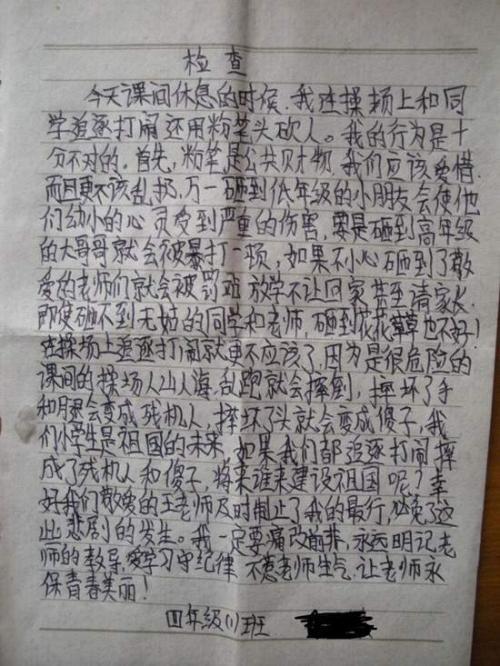 检查
今天课间休息的时候,我在操场上和同
学追逐打闹还用粉笔头砍人。我的行为是十
分不对的。首先,粉笔是公共财物,我们应该爱惜,
而且更不该乱扔,万一砸到低年级的小朋友会使他
们幼小的心灵受到严重的伤害,要是砸到高年级
的大哥哥就会被暴打一顿,如果不小心砸到了敬
爱的老师们就会被罚站放学不让回家甚至请家长,
即使砸不到无姑的同学和老师,砸到花花草草也不好!
在操场上追逐打闹就更不应该了,因为是很危险的
课间的操场人山人海,乱跑就会摔倒,摔坏了手
和脚会变成残机人,摔坏了头就会变成傻子,我
们小学生是祖国的未来,如果我们都追逐打闹摔
成了残机人和傻子,将来谁来建设祖国呢?幸
好我们敬爱的王老师及时制止了我的最行,避免了这
些悲剧的发生。我一定要痛改前非,永远明记老
师的教导,爱学习守纪律不惹老师生气,让老师永
保青春美丽!
四年级(1)班